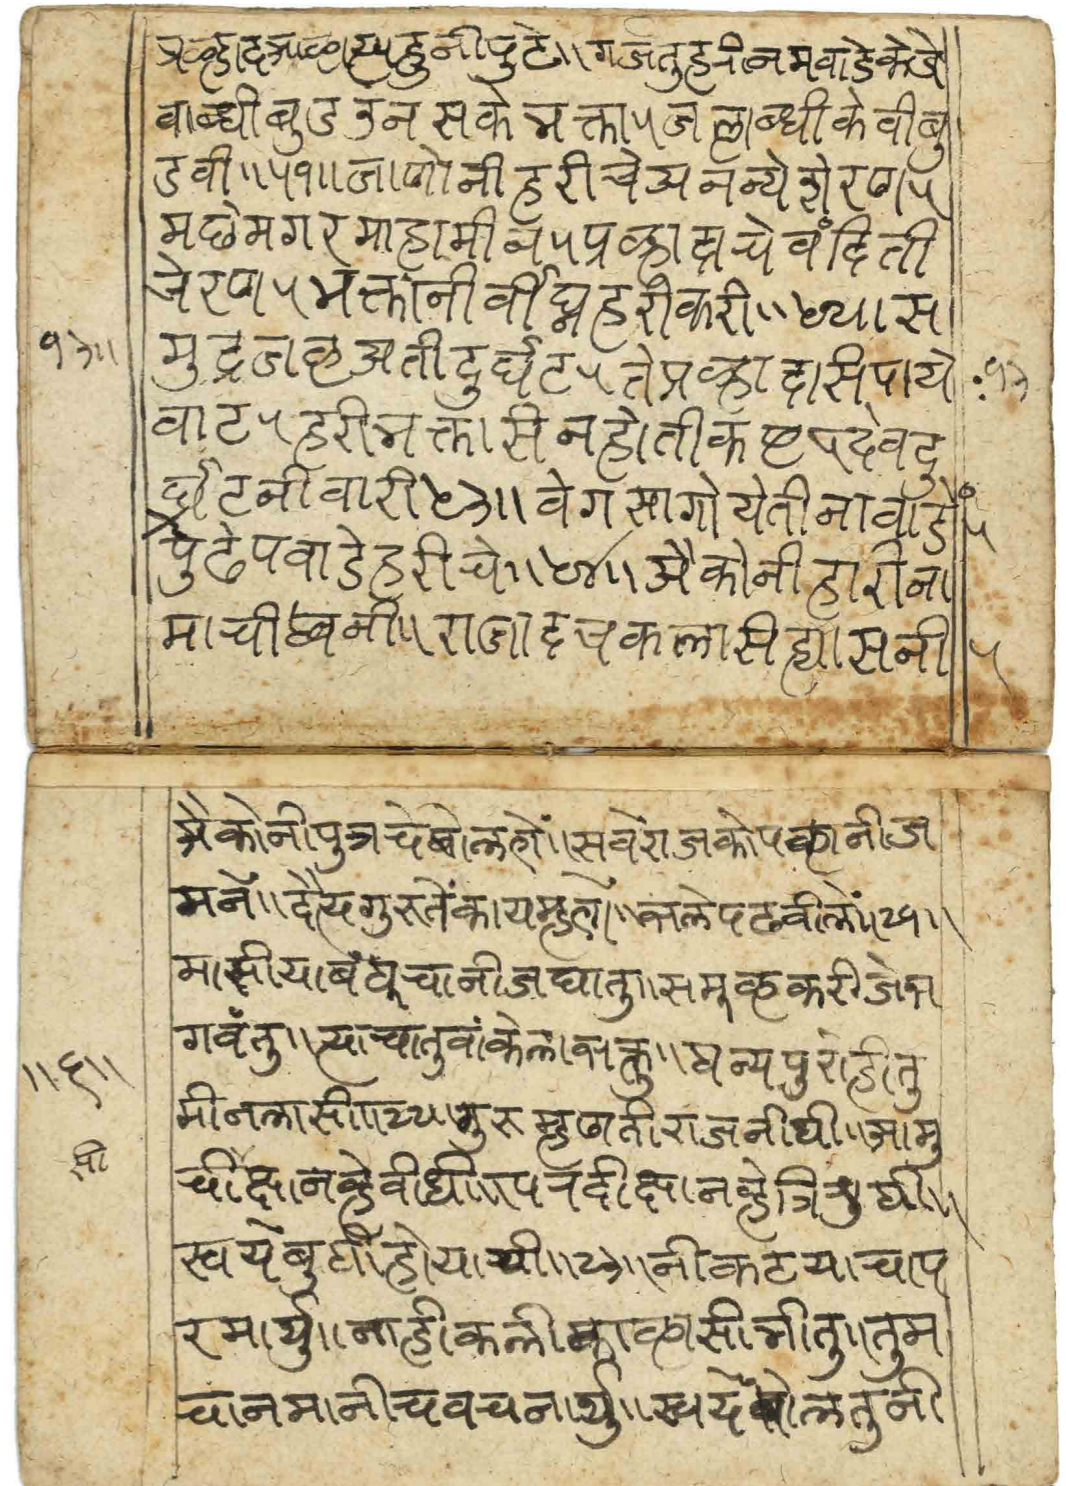 प्रल्हाद आला पाहुनी पुटे॥ गर्जतु हरीनमवाडेकेजे
वाब्धी बुडउन सके भक्ता५जलाब्धीकेवीबु
डवी॥५१॥जाणोनीहरीचेअनन्येशेरण५
मछेमगरमाहामीन५प्रल्हादाचेवंदिती
चेरण५भक्तानीर्वीघ्नहरीकरी॥५२॥स
१३॥ मुद्रजळअतीदुर्घट५तेप्रल्हादासिपाये १३
वाट५हरीभक्तासिनहोतीकष्ट५देवदु
र्घटनीवारी५३॥वेगसागोयेतीनावाडे५
पुढेपवाडेहरीचे॥५४॥अैकोनीहारीना
माचीध्वनी॥राजादचकलासीह्यासनी५
अैकोनीपुत्रचेबोलणें॥सवेंराजकोपलानीज
मनें॥दैत्यगुरुतेंकायम्हणे॥भलेपढवीलें॥२१॥
माझीयाबंधुचानीजघातु॥समूळकरीजेभ
गवंतु॥त्याचातुवांकेलाभक्तु॥धन्यपुरोहीतु
॥६॥
मीनलासी॥२२॥गुरुम्हणतीराजनीधी॥आमु
ची क्षानव्हेवीधी॥परदीक्षानव्हेत्रिशुधी॥
स्वयेंबुधीहोयाची॥२३॥नीकटयाचाप
रमार्थु॥नाहीकलीकाळासीभीतु॥तुम
चानमानीचवचनार्थु॥स्वयेंबोलतुनी